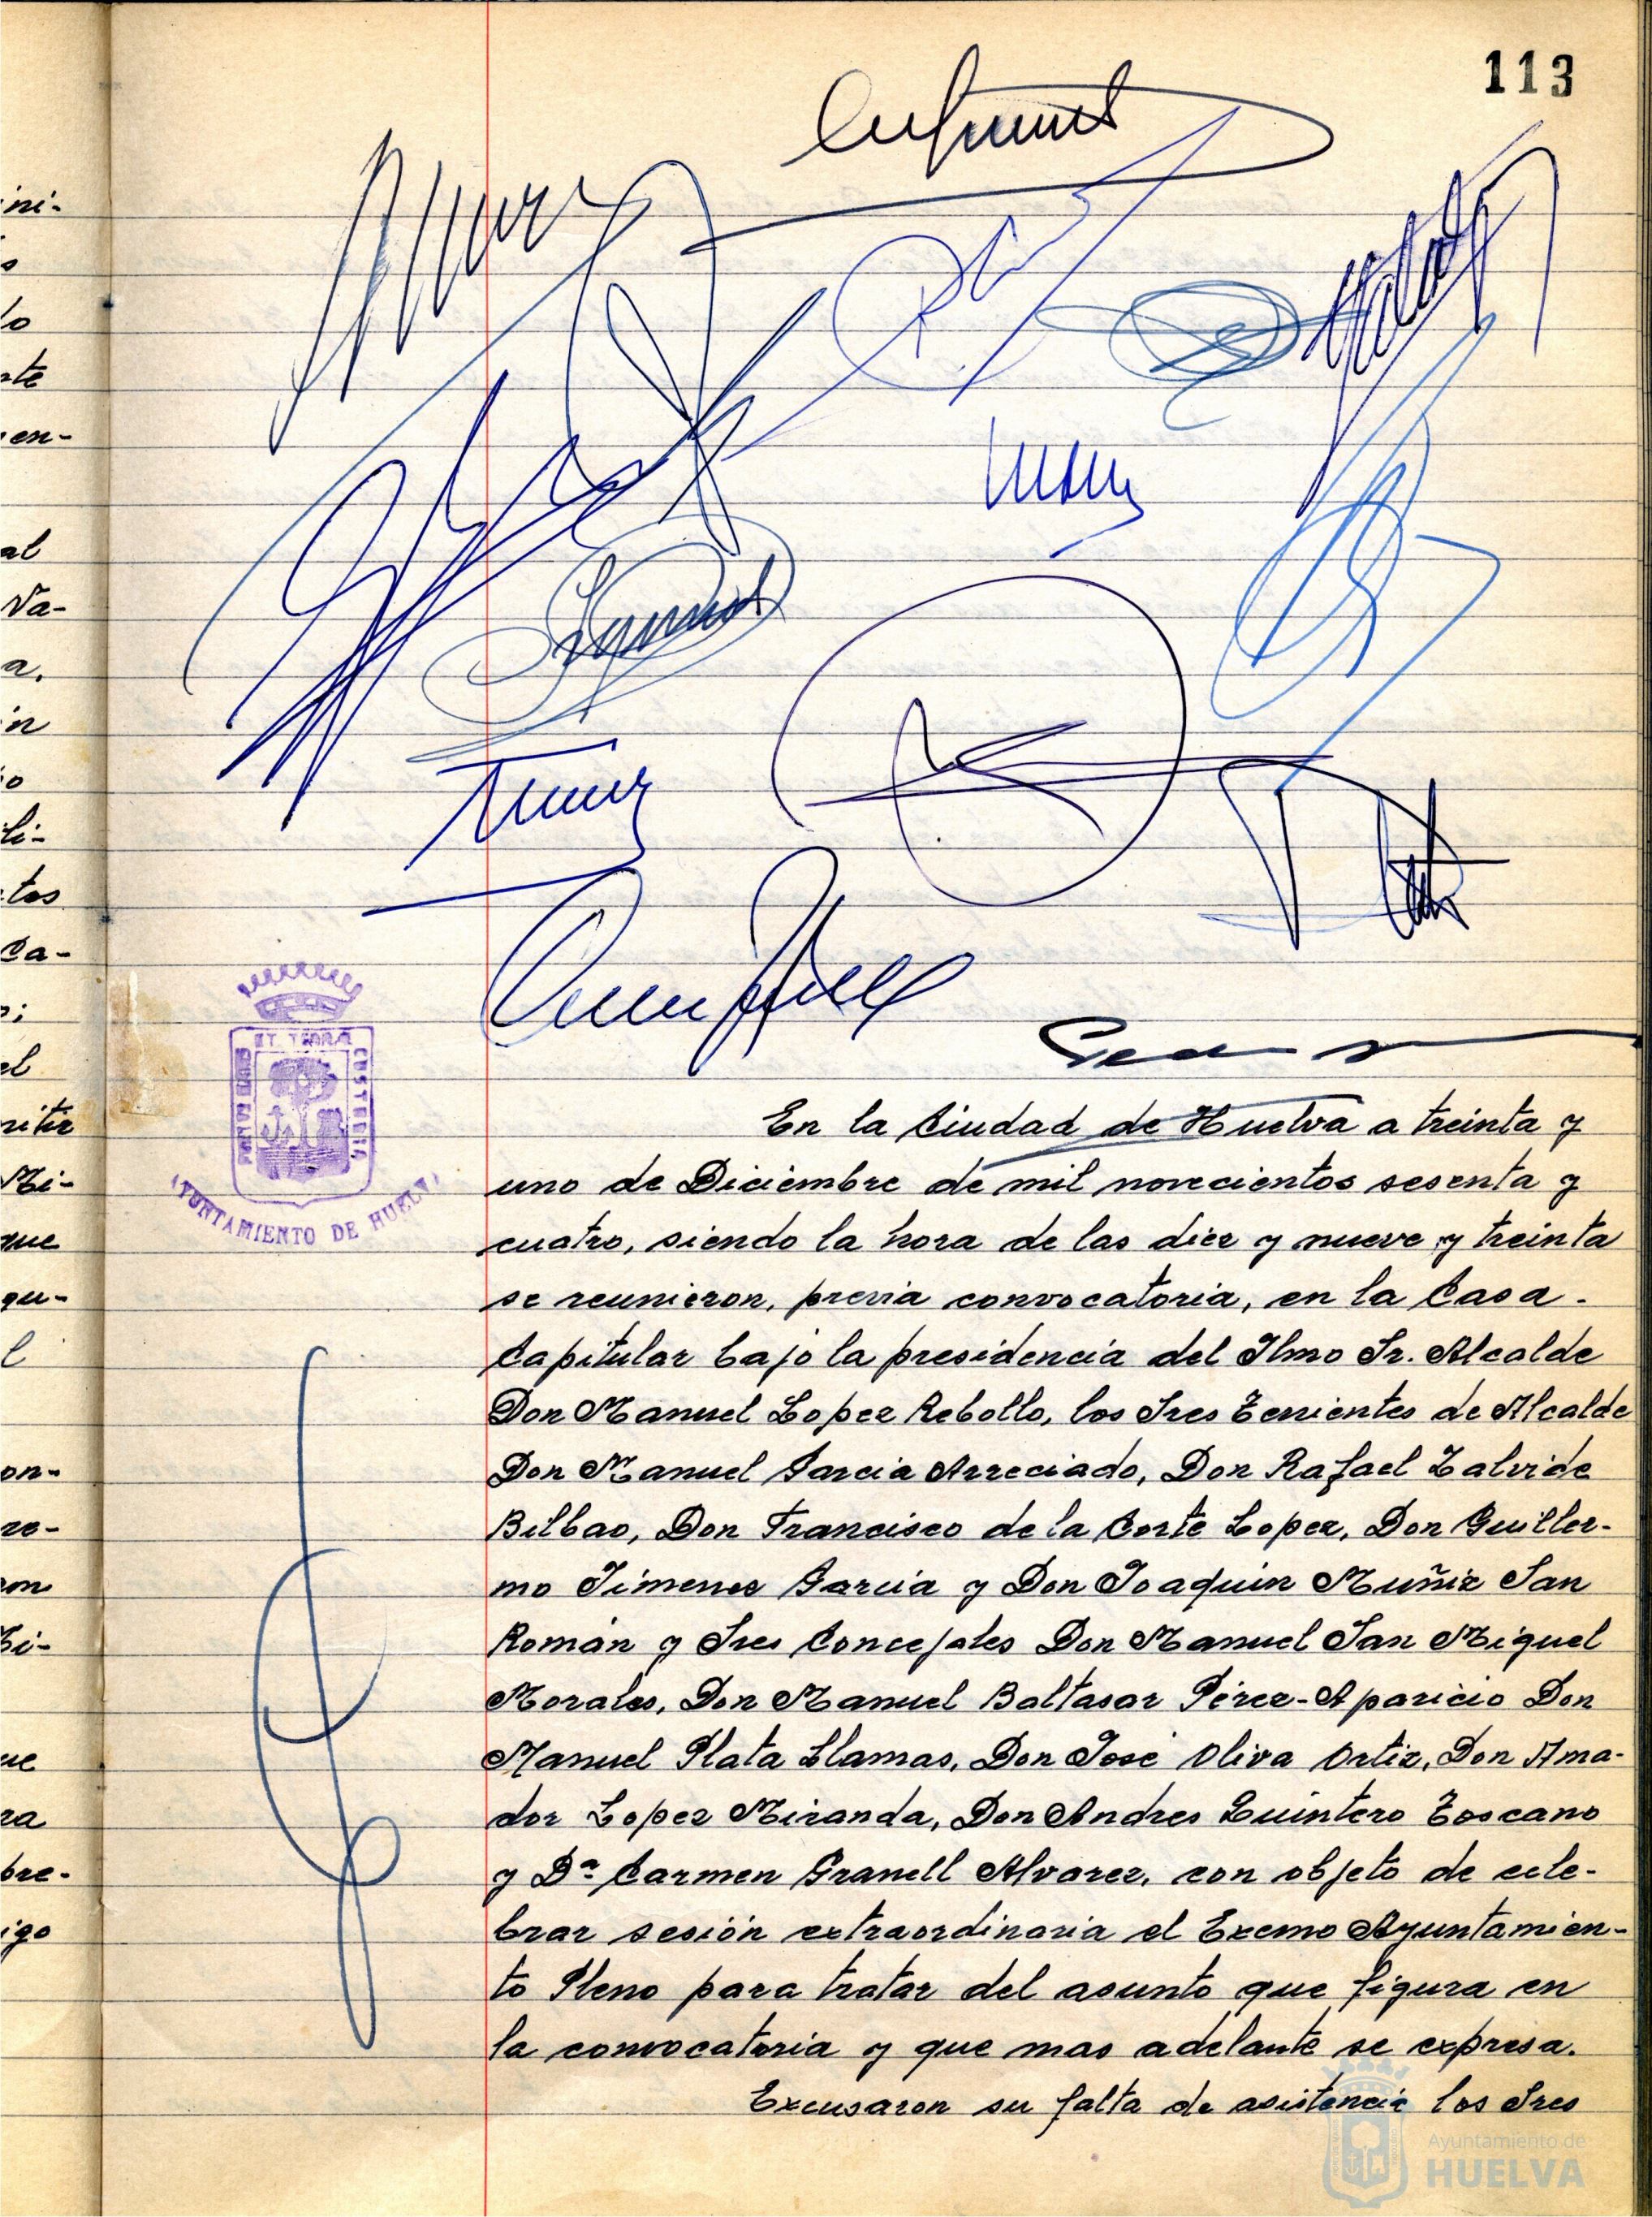 113
ini-
o
lo
te
en-
al
Va-
a.
in
io
li-
tos
Ca-
el
Mi-
que
gu-
l
on-
ro-
on
ue
ra
bre-
igo
ET TERRAE
CUSTODIA
AYUNTAMIENTO DE HUELVA
En la Ciudad de Huelva a treinta y
uno de Diciembre de mil novecientos sesenta y
cuatro, siendo la hora de las diez y nueve y treinta
se reunieron, previa convocatoria, en la Casa-
Capitular bajo la presidencia del Ilmo Sr. Alcalde
Don Manuel Lopez Rebollo, los Sres Tenientes de Alcalde
Don Manuel Garcia Arreciado, Don Rafael Zalvide
Bilbao, Don Francisco de la Corte Lopez, Don Guiller-
mo Jimenez Garcia y Don Joaquin Muñiz San
Román y Sres Concejales Don Manuel San Miguel
Morales, Don Manuel Baltasar Pérez-Aparicio Don
Manuel Plata Llamas, Don José Oliva Ortiz, Don Ama-
dor Lopez Miranda, Don Andres Quintero Toscano
y Dª Carmen Granell Alvarez, con objeto de cele-
brar sesión extraordinaria el Excmo Ayuntamien-
to Pleno para tratar del asunto que figura en
la convocatoria y que mas adelante se expresa.
Excusaron su falta de asistencia los Sres
Ayuntamiento de
HUELVA